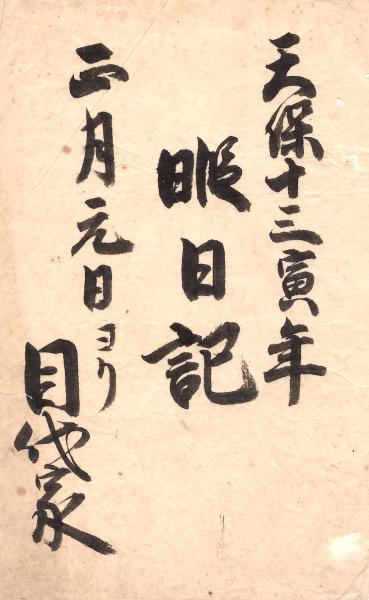 天保十三寅年
日記
正月元日ヨリ
目代家